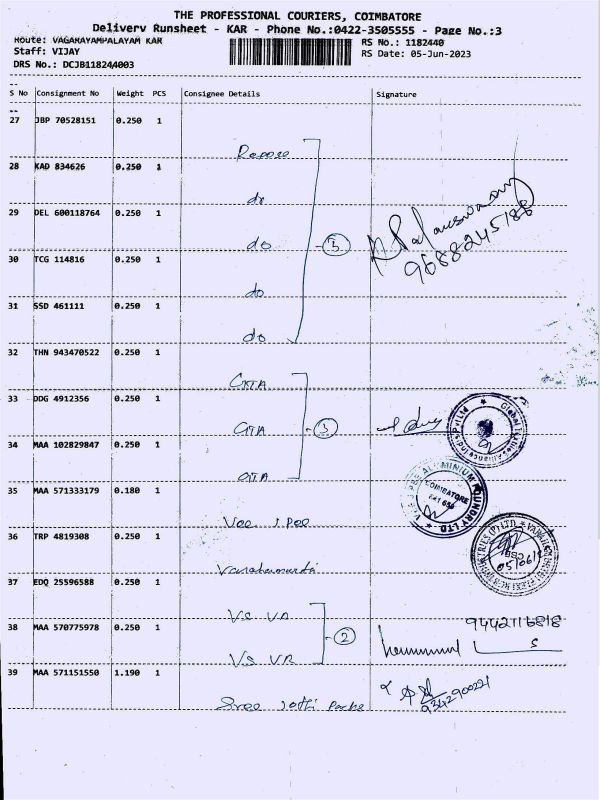 THE PROFESSIONAL COURIERS, COIMBATORE
Delivery Runsheet - KAR - Phone No.:0422-3505555 - Page No.:3
Route: VAGARAYAMPALAYAM KAR
RS No.: 1182440
Staff: VIJAY
RS Date: 05-Jun-2023
DRS No.: DCJB118244003
S No Consignment No Weight PCS Consignee Details Signature
27 JBP 70528151 0.250 1
28 KAD 834626 0.250 1
do
29 DEL 600118764 0.250 1
do 5
9688245188
30 TCG 114816 0.250 1
do
31 SSD 461111 0.250 1
do
32 THN 943470522 0.250 1
33 DDG 4912356 0.250 1
3
34 MAA 102829847 0.250 1
35 MAA 571333179 0.180 1
COIMBATORE
Vee J Pee
36 TRP 4819308 0.250 1
37 EDQ 25596588 0.250 1
VS VR
9442116818
38 MAA 570775978 0.250 1
2
VS VR
39 MAA 571151550 1.190 1
Sree Jothi Packs